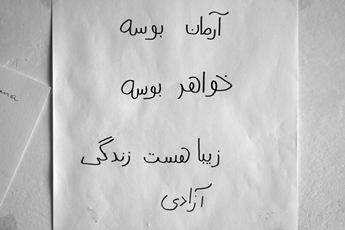 آرمان بوسه
خواهر بوسه
زیبا هست زندگی
آزادی